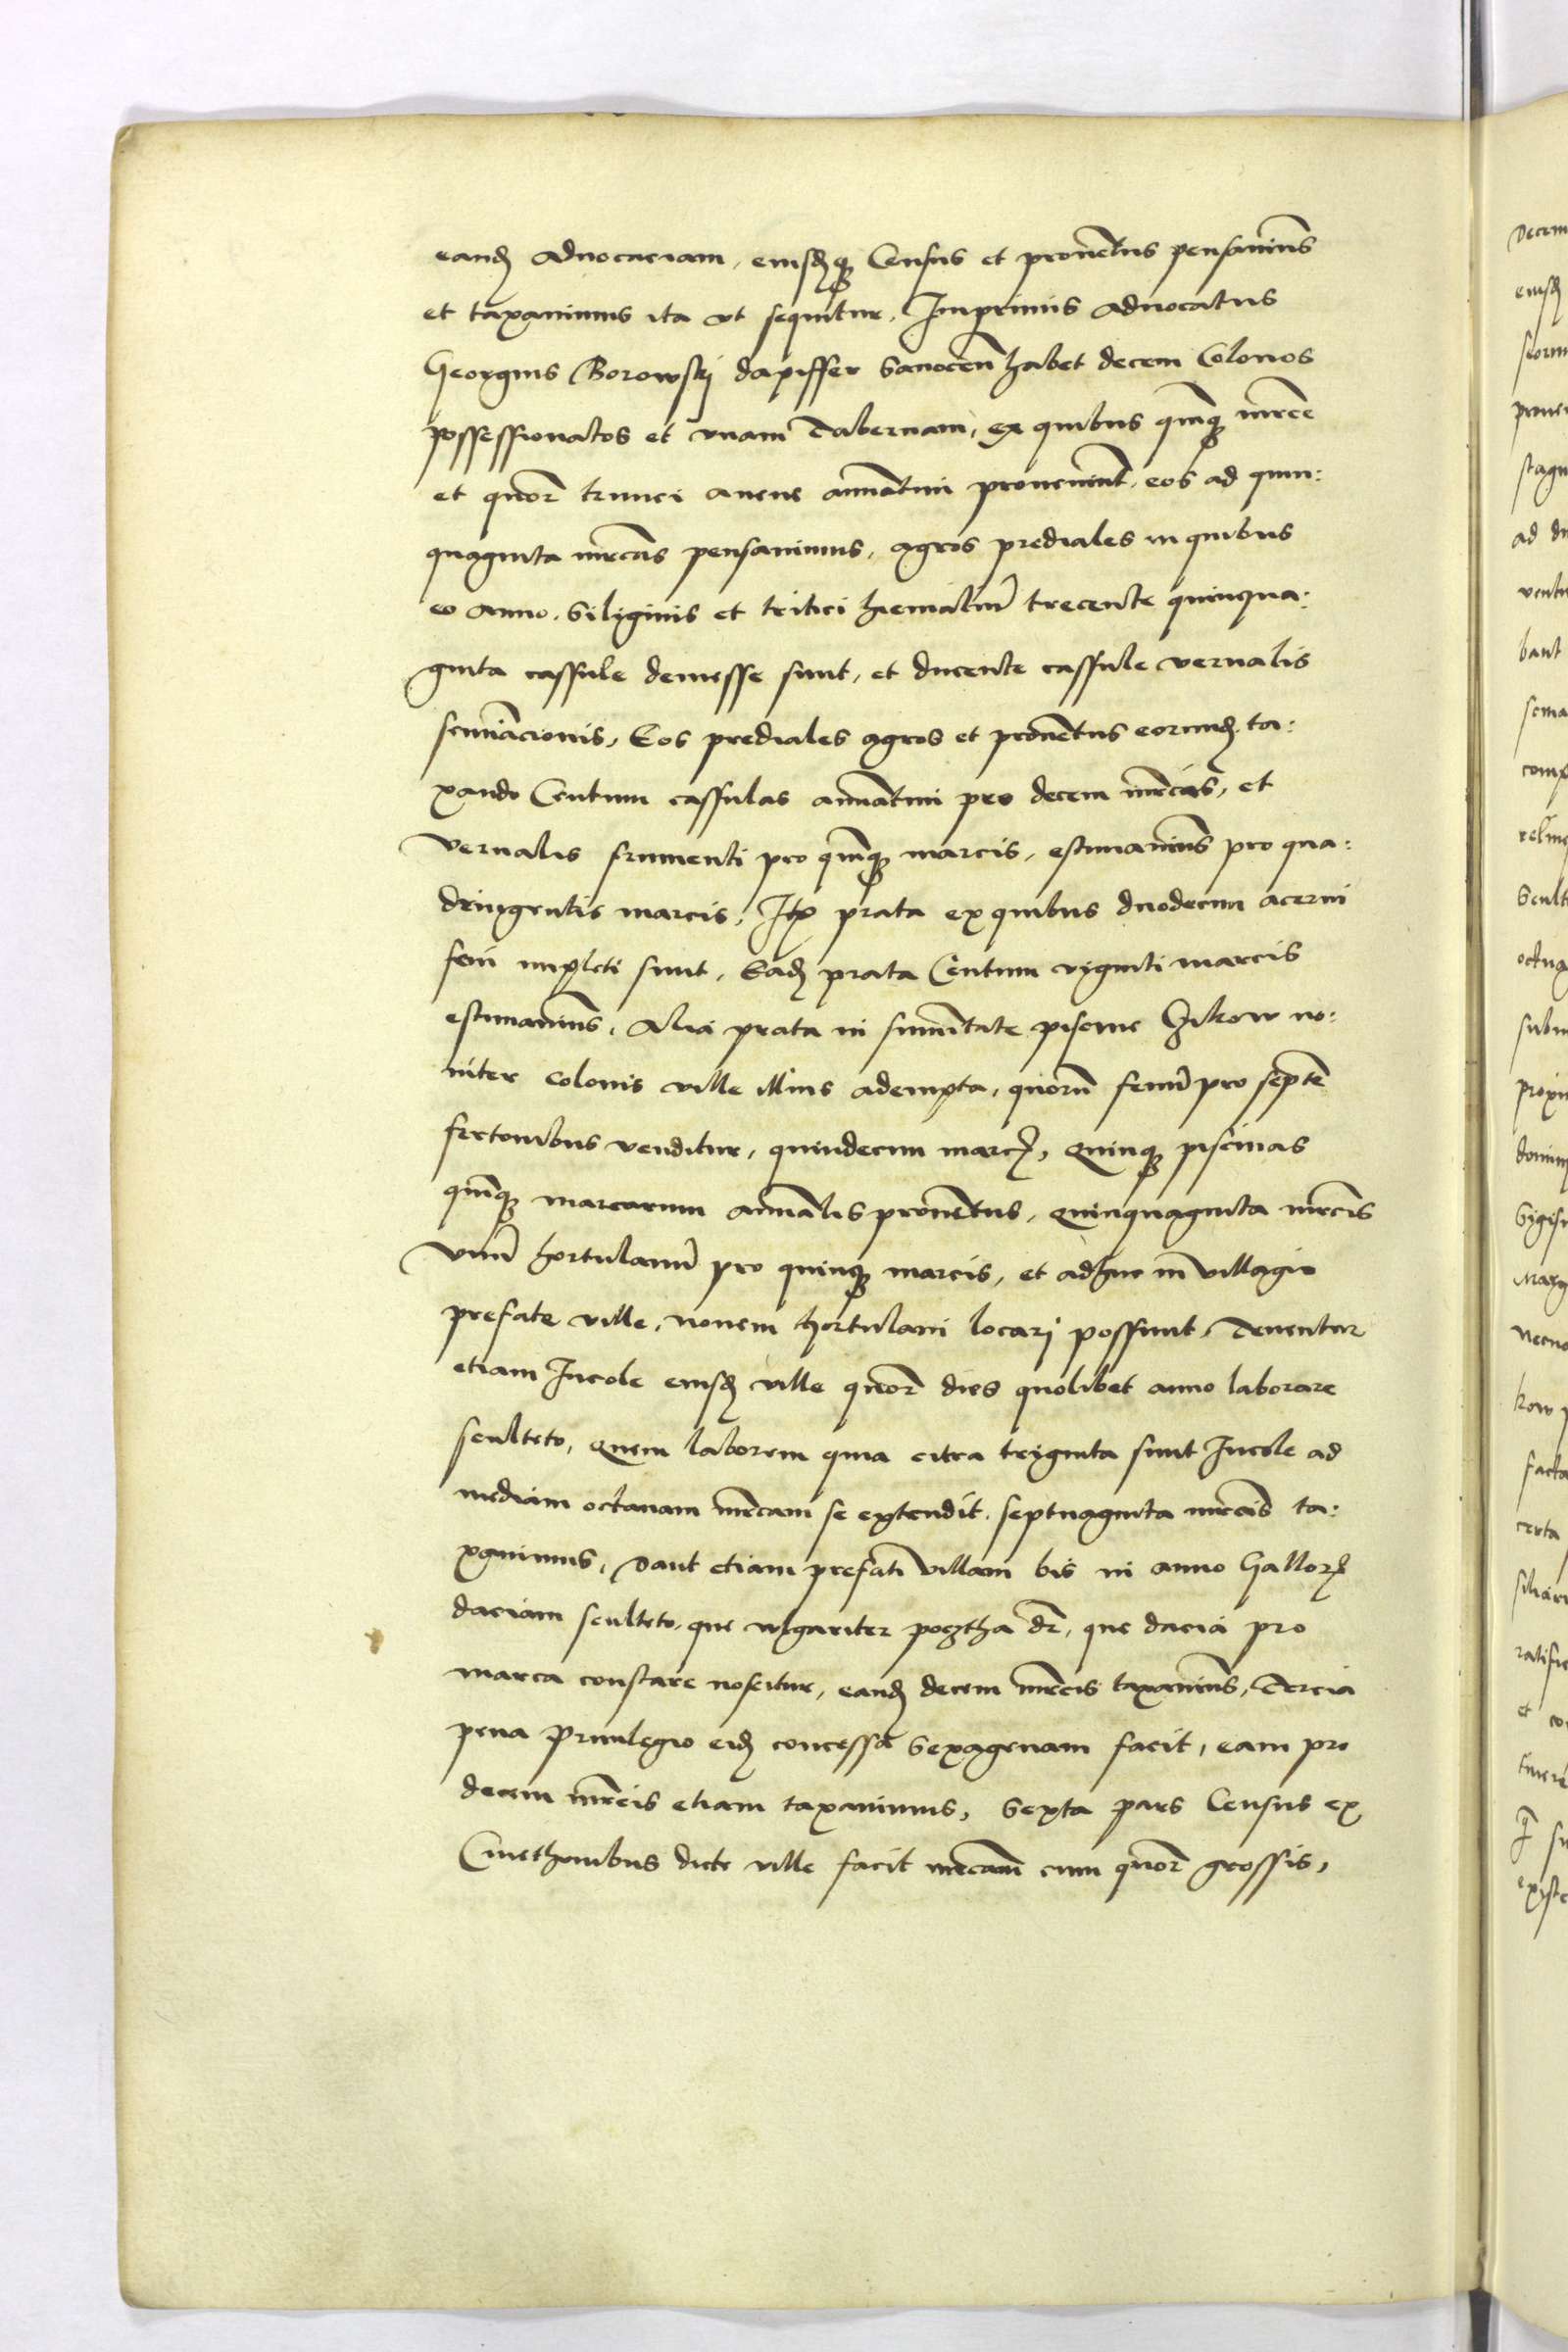 eand(em) aduocaciam, eiusdemq(ue) Census et prouẽtus pensauim(us)
et taxauimus ita vt sequitur, Inprimis aduocatus
Georgius Borowskj dapiffer Sanoceñ habet decem Colonos
possessionatos et vnam Tabernam, ex quibus quiq(ue) mrce
et quor trunci auene annatim proueniunt, eos ad quin:
quaginta mrcas pensauimus, agros prediales in quibus
eo anno, Siliginis et tritici hiemaliũ trecente quinqua:
ginta cassule demesse sunt, et ducente cassule vernalis
semiacionis, Eos prediales agros et prouẽtus eorund(em) ta:
xando Centum cassulas annatim pro decem mrcis, et
vernalis frumenti pro quiq(ue) marcis, estimauim(us) pro qua:
dringentis marcis, Ite(m) prata ex quibus duodecim acerui
feni impleti sunt, Ead(em) prata Centum viginti marcis
estimauim(us), Alia prata in sumitate piscine no:
uiter colonis ville illius adempta, quorũ fenũ pro septẽ
fertonibus venditur, quindecim marc(is), Quinq(ue) piscinas
quiq(ue) marcarum annalis prouẽtus, quinquaginta mrcis
vnũ hortulanũ pro quinq(ue) marcis, et adhuc in villagio
prefate ville, nouem hortulani locarj possunt, Tenentur
etiam Incole eiusd(em) ville quor dies quolibet anno laborare
sculteto, Quem laborem quia citra triginta sunt Incole ad
mediam octauam mrcam se extendit, septuaginta mrcis ta:
xauimus, Dant etiam prefati villani bis in anno Gallor(um)
daciam sculteto, que wlgariter poczthа dr, que dacia pro
marca constare noscitur, eand(em) decem mrcis taxauim(us), Tercia
pena Priuilegio eid(em) concessa Sexagenam facit, eam pro
decem mrcis etiam taxauimus, Sexta pars Census ex
Cmethonibus dicte ville facit mrcam cum quor grossis,